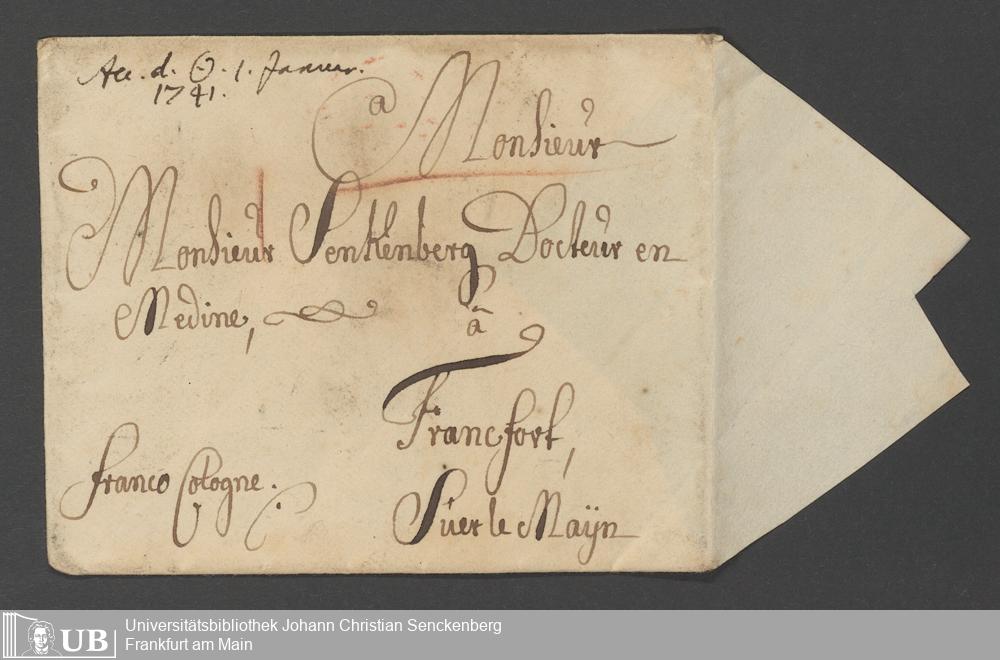 Acc. d. ☉. 1. Januar.
1741.
a Monsieur
Monsieur Senkenberg Docteur en
Medine,
â
Francfort,
Suer le Maÿn
franco Cologne.
UB
Universitätsbibliothek Johann Christian Senckenberg
Frankfurt am Main